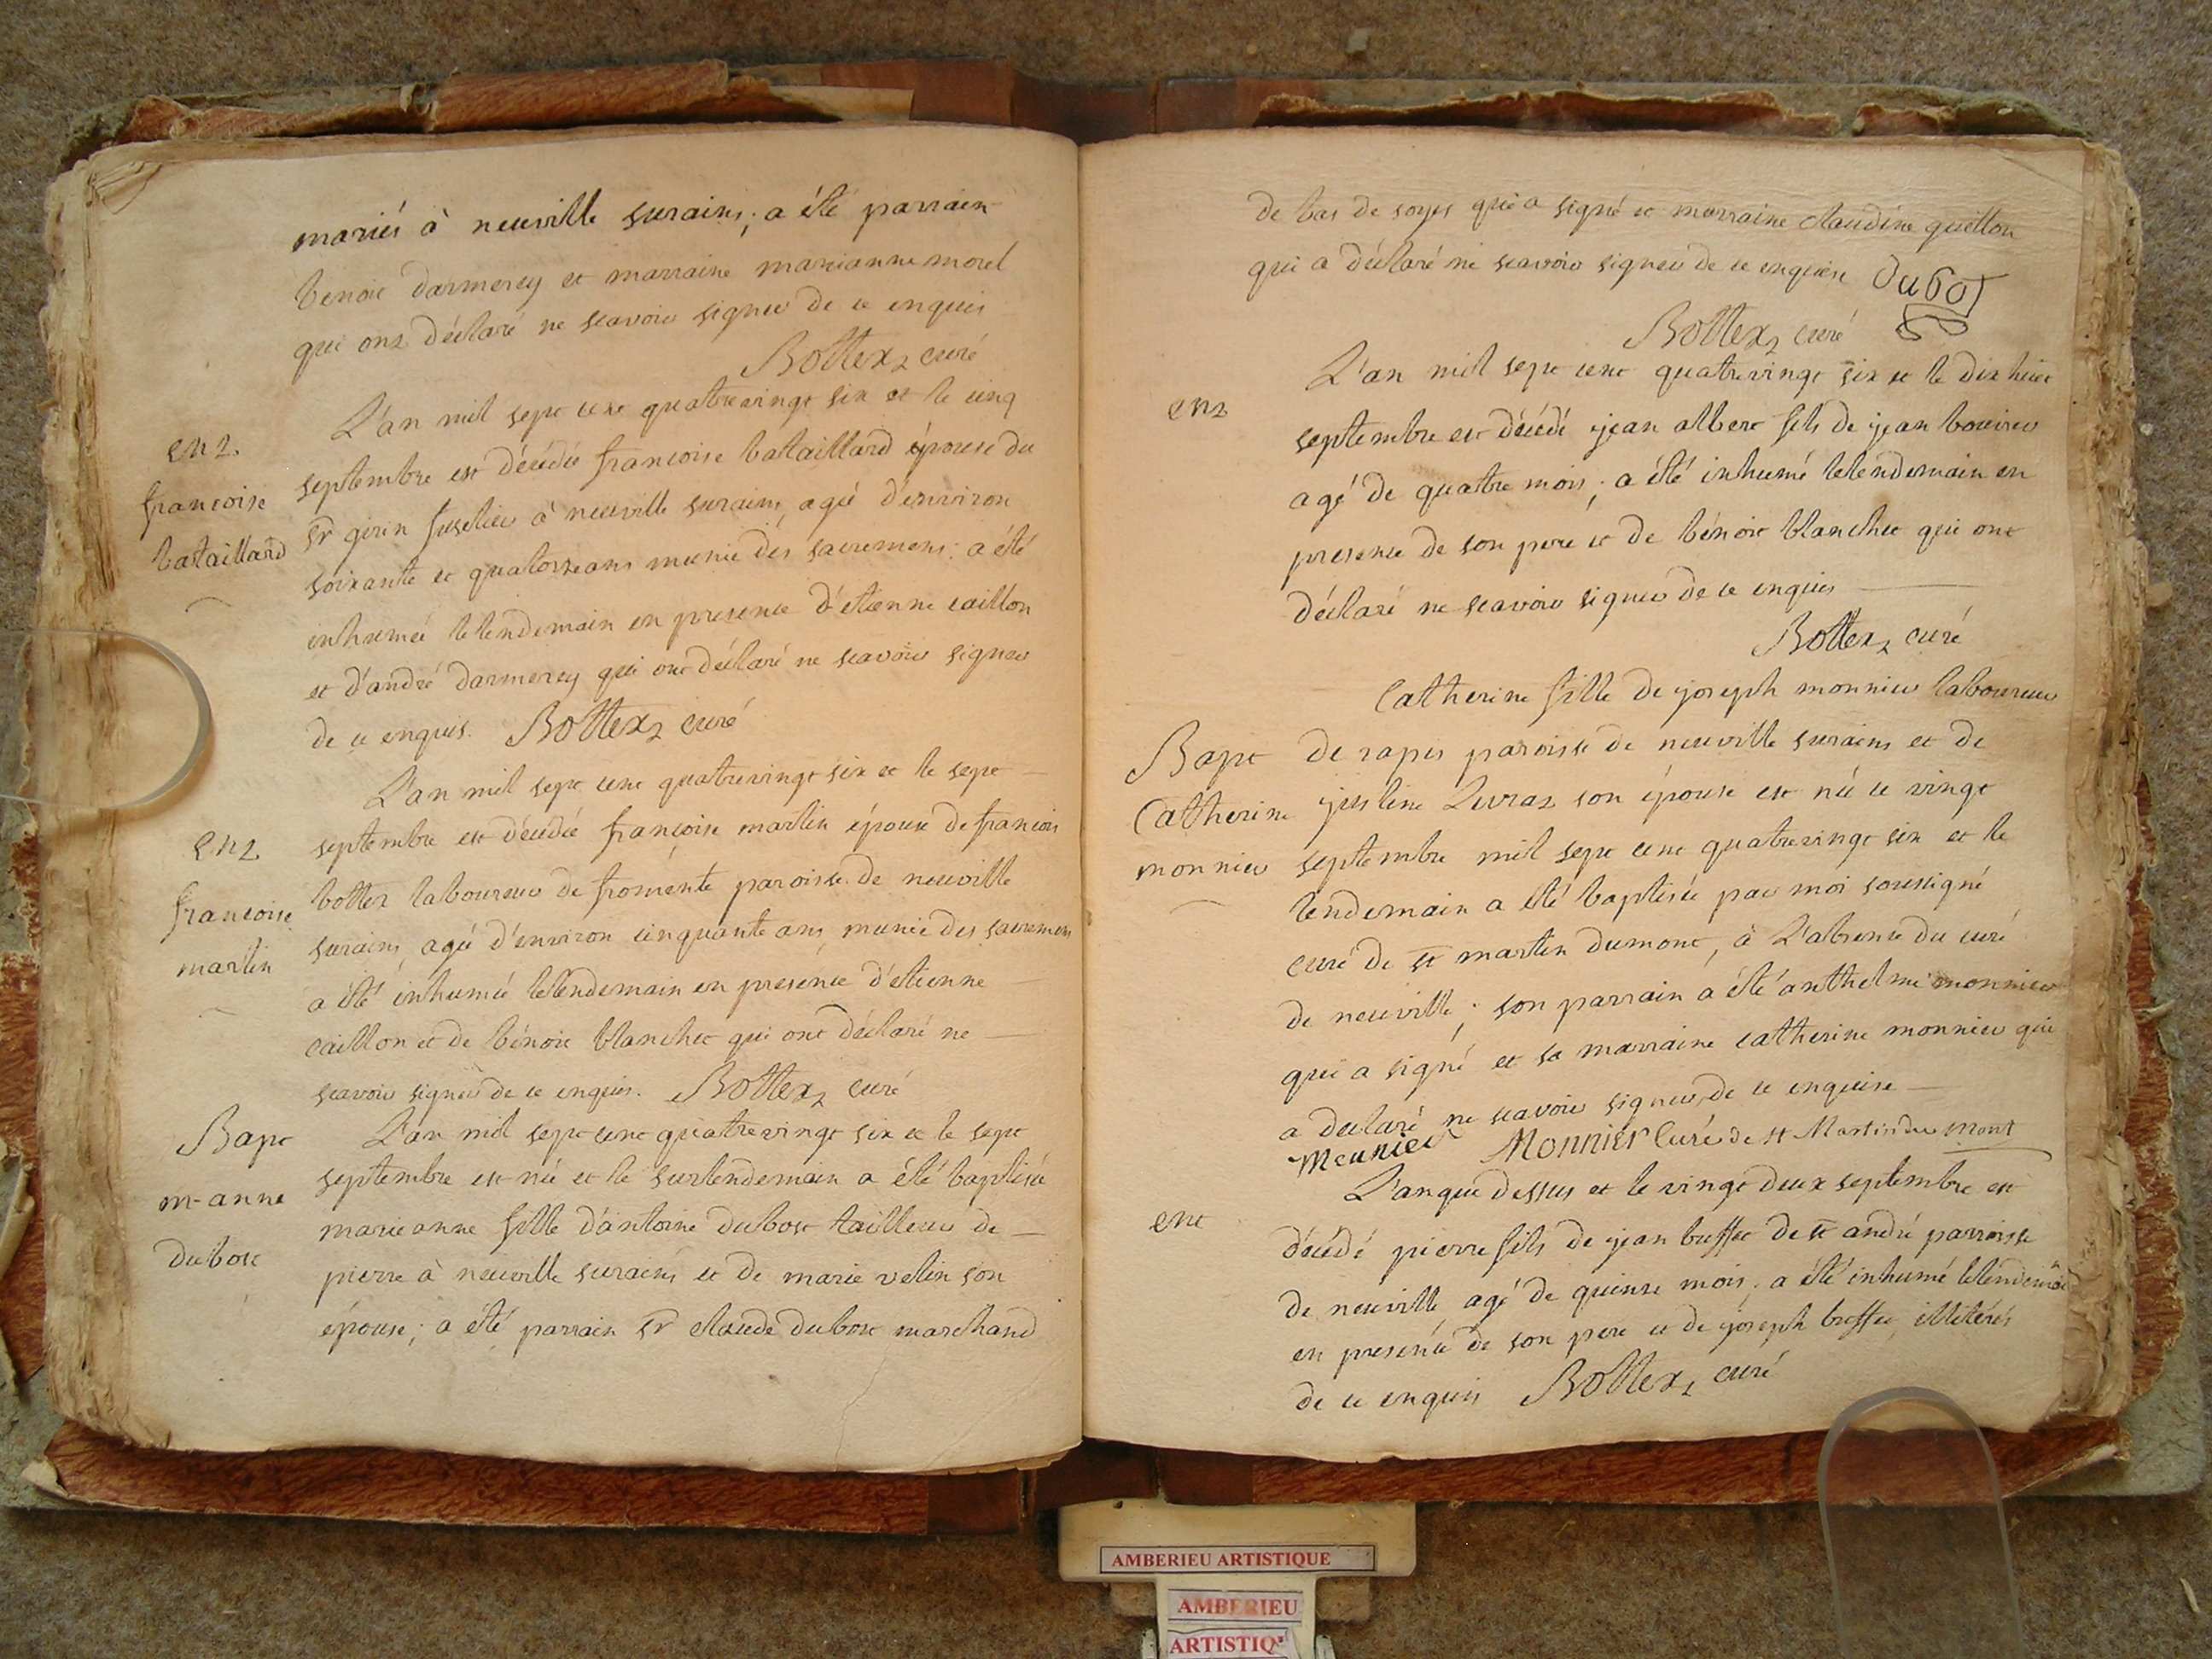 mariés à neuville surains; a été parrain
benoit darmerey et marraine marianne morel
qui ont déclaré ne scavoir signer de ce enquis
Bottex, curé
ent
françoise
bataillard
L'an mil sept cent quatrevingt six et le cinq
septembre est décédée françoise bataillard épouse du
Sr girin fuselier à neuville surains, agée d'environ
soixante et quatorze ans munie des sacremens; a été
inhumée le lendemain en presence d'etienne caillon
et d'andré darmerey qui ont déclaré ne scavoir signer
de ce enquis. Bottex, curé
ent
françoise
martin
L'an mil sept cent quatrevingt six et le sept
septembre est décédée françoise martin épouse de françois
bottex laboureur de fromente paroisse de neuville
surains, agée d'environ cinquante ans, munie des sacremens
a été inhumée le lendemain en presence d'etienne
caillon et de bénoit blanchet qui ont déclaré ne
scavoir signer de ce enquis. Bottex, curé
Bapt
m-anne
dubost
L'an mil sept cent quatrevingt six et le sept
septembre est née et le surlendemain a été baptisée
marie anne fille d'antoine dubost tailleur de
pierre à neuville surains et de marie velin son
épouse; a été parrain sr claude dubost marchand
de bas de soyes qui a signé et marraine claudine guillon
qui a déclaré ne scavoir signer de ce enquise Dubost
Bottex, curé
ent
L'an mil sept cent quatrevingt six et le dix huit
septembre est décédé jean albert fils de jean bouvier
agé de quatre mois; a été inhumé le lendemain en
presence de son pere et de bénoit blanchet qui ont
déclaré ne scavoir signer de ce enquis
Bottex, curé
Bapt
Catherine
monnier
Catherine fille de joseph monnier laboureur
de rapes paroisse de neuville surains et de
justine son épouse est née ce vingt
septembre mil sept cent quatrevingt six et le
lendemain a été baptisée par moi soussigné
curé de st martin dumont, à l'absence du curé
de neuville; son parrain a été anthelme monnier
qui a signé et sa marraine catherine monnier qui
a declaré ne scavoir signer de ce enquise
Meunier Monnier Curé de st Martin du mont
ent
L'an que dessus et le vingt deux septembre est
décédé pierre fils de jean buffet de st andré parroisse
de neuville, agé de quinze mois; a été inhumé le lendemain
en presence de son pere et de joseph buffet, illiterés
de ce enquis Bottex, curé
AMBERIEU ARTISTIQUE
AMBERIEU
ARTISTIQ